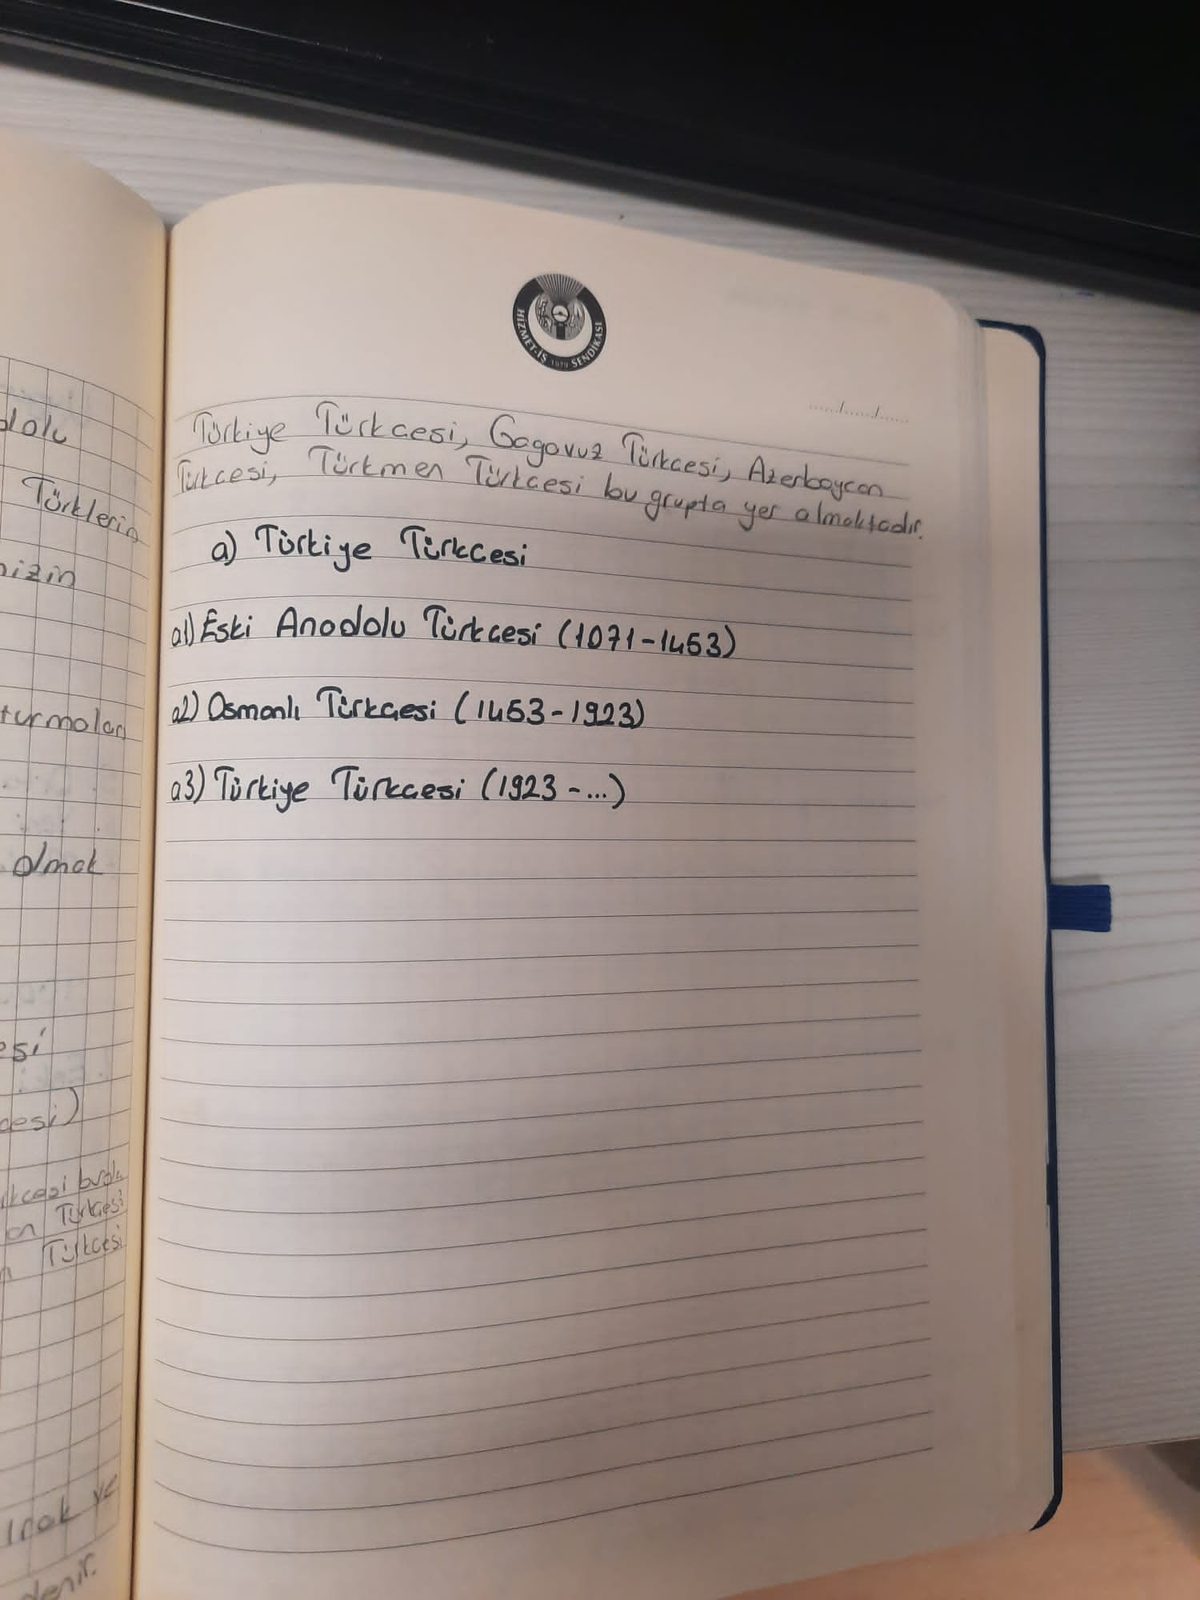 dolu
Türklerin
mizin
turmaları
olmak
esi
cesi)
Türkçesi
Türkçesi
Irak ve
denir.
HİZMET-İŞ 1979 SENDİKASI
..../..../....
Türkiye Türkçesi, Gagavuz Türkçesi, Azerbaycan
Türkçesi, Türkmen Türkçesi bu grupta yer almaktadır.
a) Türkiye Türkçesi
a1) Eski Anadolu Türkçesi (1071-1453)
a2) Osmanlı Türkçesi (1453-1923)
a3) Türkiye Türkçesi (1923-...)